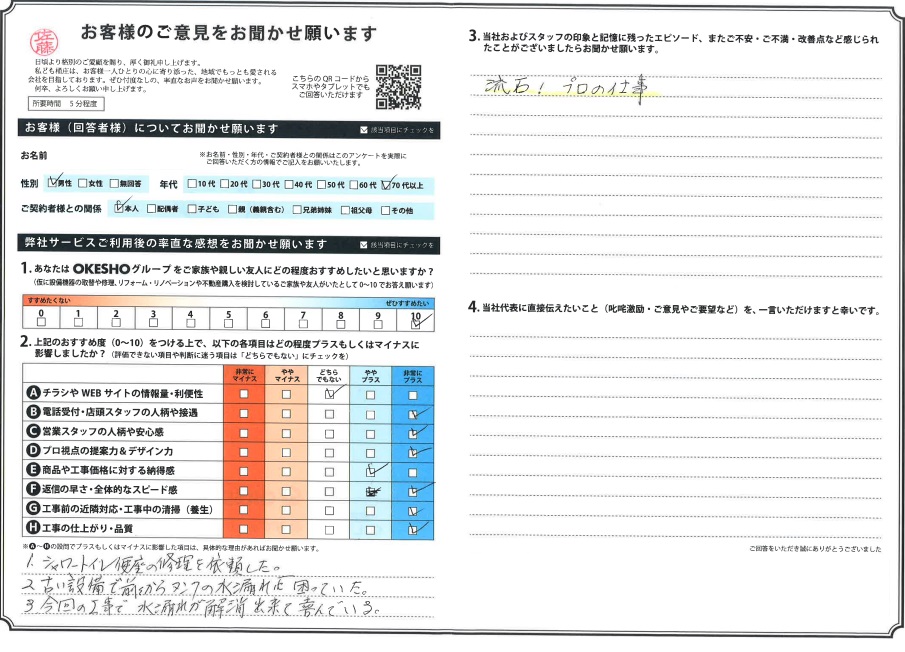 佐藤
お客様のご意見をお聞かせ願います
日頃より格別のご愛顧を賜り、厚く御礼申し上げます。
私ども桶庄は、お客様一人ひとりの心に寄り添った、地域でもっとも愛される
会社を目指しております。ぜひ忖度なしの、率直なお声をお聞かせ願います。
何卒、よろしくお願い申し上げます。
所要時間 5分程度
こちらのQRコードから
スマホやタブレットでも
ご回答いただけます
お客様（回答者様）についてお聞かせ願います
該当項目にチェックを
お名前
※お名前・性別・年代・ご契約者様との関係はこのアンケートを実際に
ご回答いただく方の情報でご記入をお願いいたします。
性別 男性 女性 無回答 年代 10代 20代 30代 40代 50代 60代 70代以上
ご契約者様との関係 本人 配偶者 子ども 親（義親含む） 兄弟姉妹 祖父母 その他
弊社サービスご利用後の率直な感想をお聞かせ願います
該当項目にチェックを
1. あなたは OKESHOグループ をご家族や親しい友人にどの程度おすすめしたいと思いますか？
（仮に設備機器の取替や修理、リフォーム・リノベーションや不動産購入を検討しているご家族や友人がいたとして 0〜10 でお答え願います）
すすめたくない ぜひすすめたい
0 1 2 3 4 5 6 7 8 9 10
2. 上記のおすすめ度（0〜10）をつける上で、以下の各項目はどの程度プラスもしくはマイナスに
影響しましたか？（評価できない項目や判断に迷う項目は「どちらでもない」にチェックを）
非常にマイナス ややマイナス どちらでもない ややプラス 非常にプラス
A チラシや WEB サイトの情報量・利便性
B 電話受付・店頭スタッフの人柄や接遇
C 営業スタッフの人柄や安心感
D プロ視点の提案力＆デザイン力
E 商品や工事価格に対する納得感
F 返信の早さ・全体的なスピード感
G 工事前の近隣対応・工事中の清掃（養生）
H 工事の仕上がり・品質
※A〜Hの設問でプラスもしくはマイナスに影響した項目は、具体的な理由があればお聞かせ願います。
1. シャワートイレ便座の修理を依頼した。
2. 古い設備で前からタンクの水漏れに困っていた。
3. 今回の工事で水漏れが解消出来て喜んでいる。
3. 当社およびスタッフの印象と記憶に残ったエピソード、またご不安・ご不満・改善点など感じられ
たことがございましたらお聞かせ願います。
流石！プロの仕事
4. 当社代表に直接伝えたいこと（叱咤激励・ご意見やご要望など）を、一言いただけますと幸いです。
ご回答をいただき誠にありがとうございました